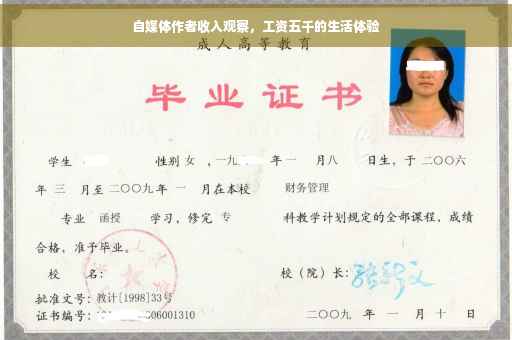 自媒体作者收入观察，工资五千的生活体验
成人高等教育
毕业证书
学生 性别 女 ，一九 年 一 月 八 日生，于 二〇〇六
年 三 月至 二〇〇九 年 一 月在本校 财务管理
专业 函授 学习，修完 专 科教学计划规定的全部课程，成绩
合格，准予毕业。
校 名： 校（院）长：
批准文号：教计[1998]33号
证书编号： 06001310 二〇〇九 年 一 月 十 日